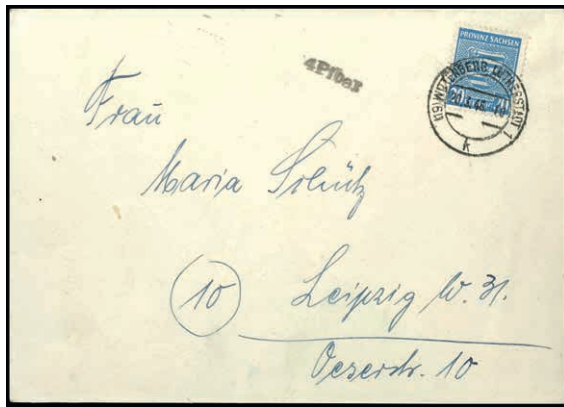 PROVINZ SACHSEN
20 20
WITTENBERG LUTHERSTADT 1
k
4Pfbar
Frau
Maria Schütz
10 Leipzig W. 31.
Oeserstr. 10